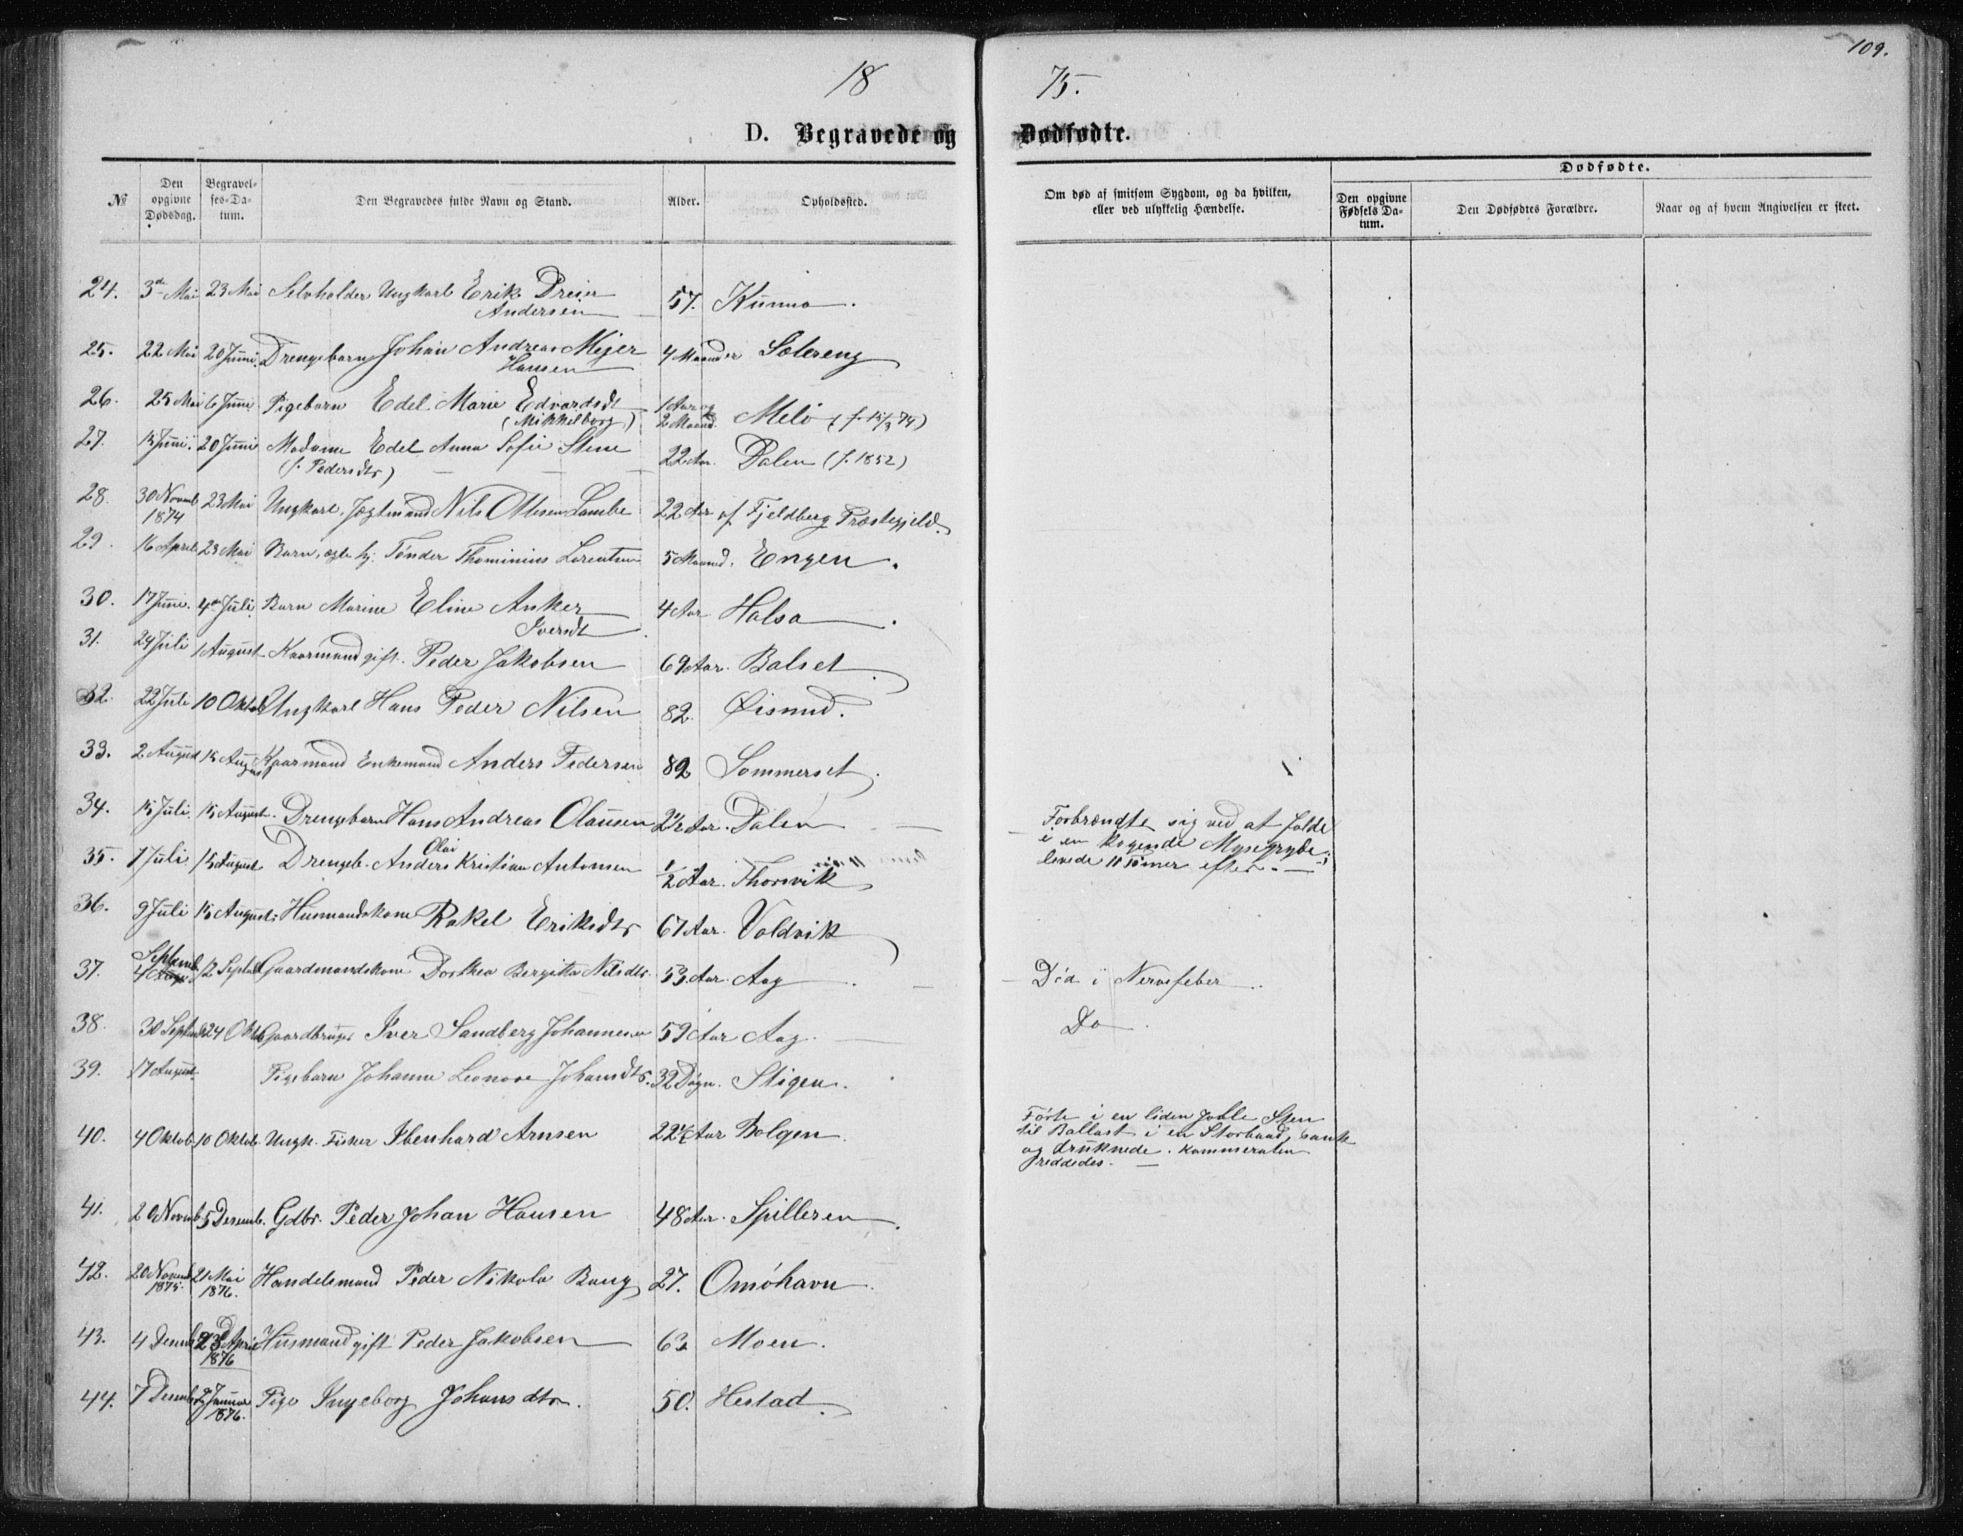 109.
18 75.
D. Begravede og Dødfødte.
№
Den opgivne Dødsdag.
Begravelses-Datum.
Den Begravedes fulde Navn og Stand.
Alder.
Opholdssted.
Om død af smitsom Sygdom, og da hvilken, eller ved ulykkelig Hændelse.
Dødfødte.
Den opgivne Fødsels Datum.
Den Dødfødtes Forældre.
Naar og af hvem Angivelsen er skeet.
24. 3de Mai 23 Mai Selvholder Ungkarl Erik Dreier 57. Kunna.
Andersen
25. 22 Mai 20 Juni Drengebarn Johan Andreas Mejer 4 Maaneder Sølereng
Hansen
26. 25 Mai 6 Juni Pigebarn Edel Marie Edvardsdt 1 Aar og 2 Maaned. Melø (f. 15/3 74)
(Mikkelborg)
27. 15 Juni 20 Juni Madame Edel Anna Sofie Stene 22 Aar. Dalen (f. 1852)
(f. Pedersdtr)
28. 30 Novemb 1874 23 Mai Ungkarl, Jægtmand Nils Ottesen Lambe 22 Aar af Fjeldberg Præstegjeld.
29. 16 April 23 Mai Barn, ægte hj. Tønder Thominius Lorentsen 5 Maaned. Engen.
30. 17 Juni. 4de Juli Barn Marine Eline Anker 4 Aar Halsa.
Iversdt
31. 29 Juli 1 August Kaarmand gift. Peder Jakobsen 69 Aar. Balset
32. 22 Juli 10 Oktob Ungkarl Hans Peder Nilsen 82. Øisund.
33. 2 August 15 August Kaarmand Enkemand Anders Pedersen 82 Sommerset.
34. 15 Juli 15 August. Drengebarn Hans Andreas Olausen 2 1/2 Aar. Dalen
Forbrændte sig ved at falde
i en kogende Mysegryde;
levede 10 Timer efter.
35. 7 Juli 15 August Drengeb. Anders Olai Kristian Antonsen 1/2 Aar. Thorsvik
36. 9 Juli 15 August. Husmandskone Rakel Eriksdtr 67 Aar. Valdvik
37. 4 Septemb 12 Septemb Gaardmandskone Dorthea Bergitta Nilsdtr. 53 Aar. Aag.
Død i Nervefeber.
38. 30 Septemb 24 Oktob Gaardbruger Iver Sandberg Johannesen 59 Aar Aag.
Do
39. 17 August. Pigebarn Johanne Leonore Johansdtr. 32 Døgn. Stigen.
40. 4 Oktob. 10 Oktob. Ungk. Fisker Ibenhard Arnsen 22 1/2 Aar Bolgen.
Førte i en liden Jolle Sten
til Ballast i en Storbaad, sank
og druknede. Kammeraten
reddedes.
41. 20 Novemb. 5 Desemb. Gdbr. Peder Johan Hansen 48 Aar. Spilleren.
42. 20 Novemb 1875. 21 Mai 1876. Handelsmand Peder Nikolai Bang 27. Omøhavn.
43. 4 Desemb 23 April 1876 Husmand gift Peder Jakobsen 63 Moen.
44. 7 Desemb 2 Januar 1876. Pige Ingeborg Johansdtr. 50. Hestad.